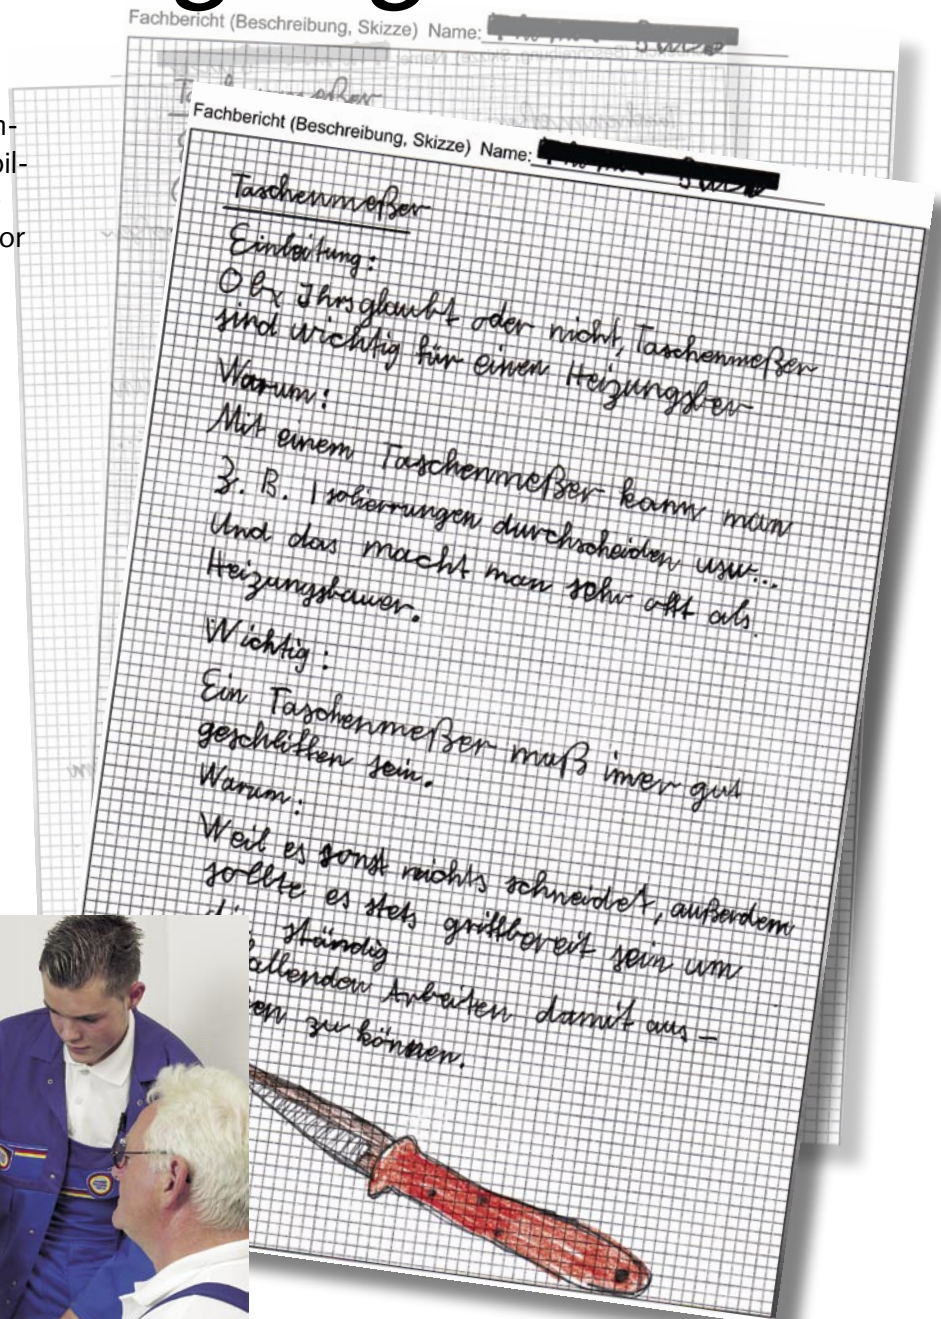 Fachbericht (Beschreibung, Skizze) Name:
Fachbericht (Beschreibung, Skizze) Name:
Taschenmeßer
Einleitung:
Ob Ihrs glaubt oder nicht, Taschenmeßer
sind wichtig für einen Heizungsber
Warum:
Mit einem Taschenmeßer kann man
Z. B. Isolierrungen durchscheiden usw...
Und das macht man sehr oft als
Heizungsbauer.
Wichtig:
Ein Taschenmeßer muß imer gut
geschliffen sein.
Warum:
Weil es sonst nichts schneidet, außerdem
sollte es stets griffbereit sein um
ständig
allenden Arbeiten damit aus-
en zu können.